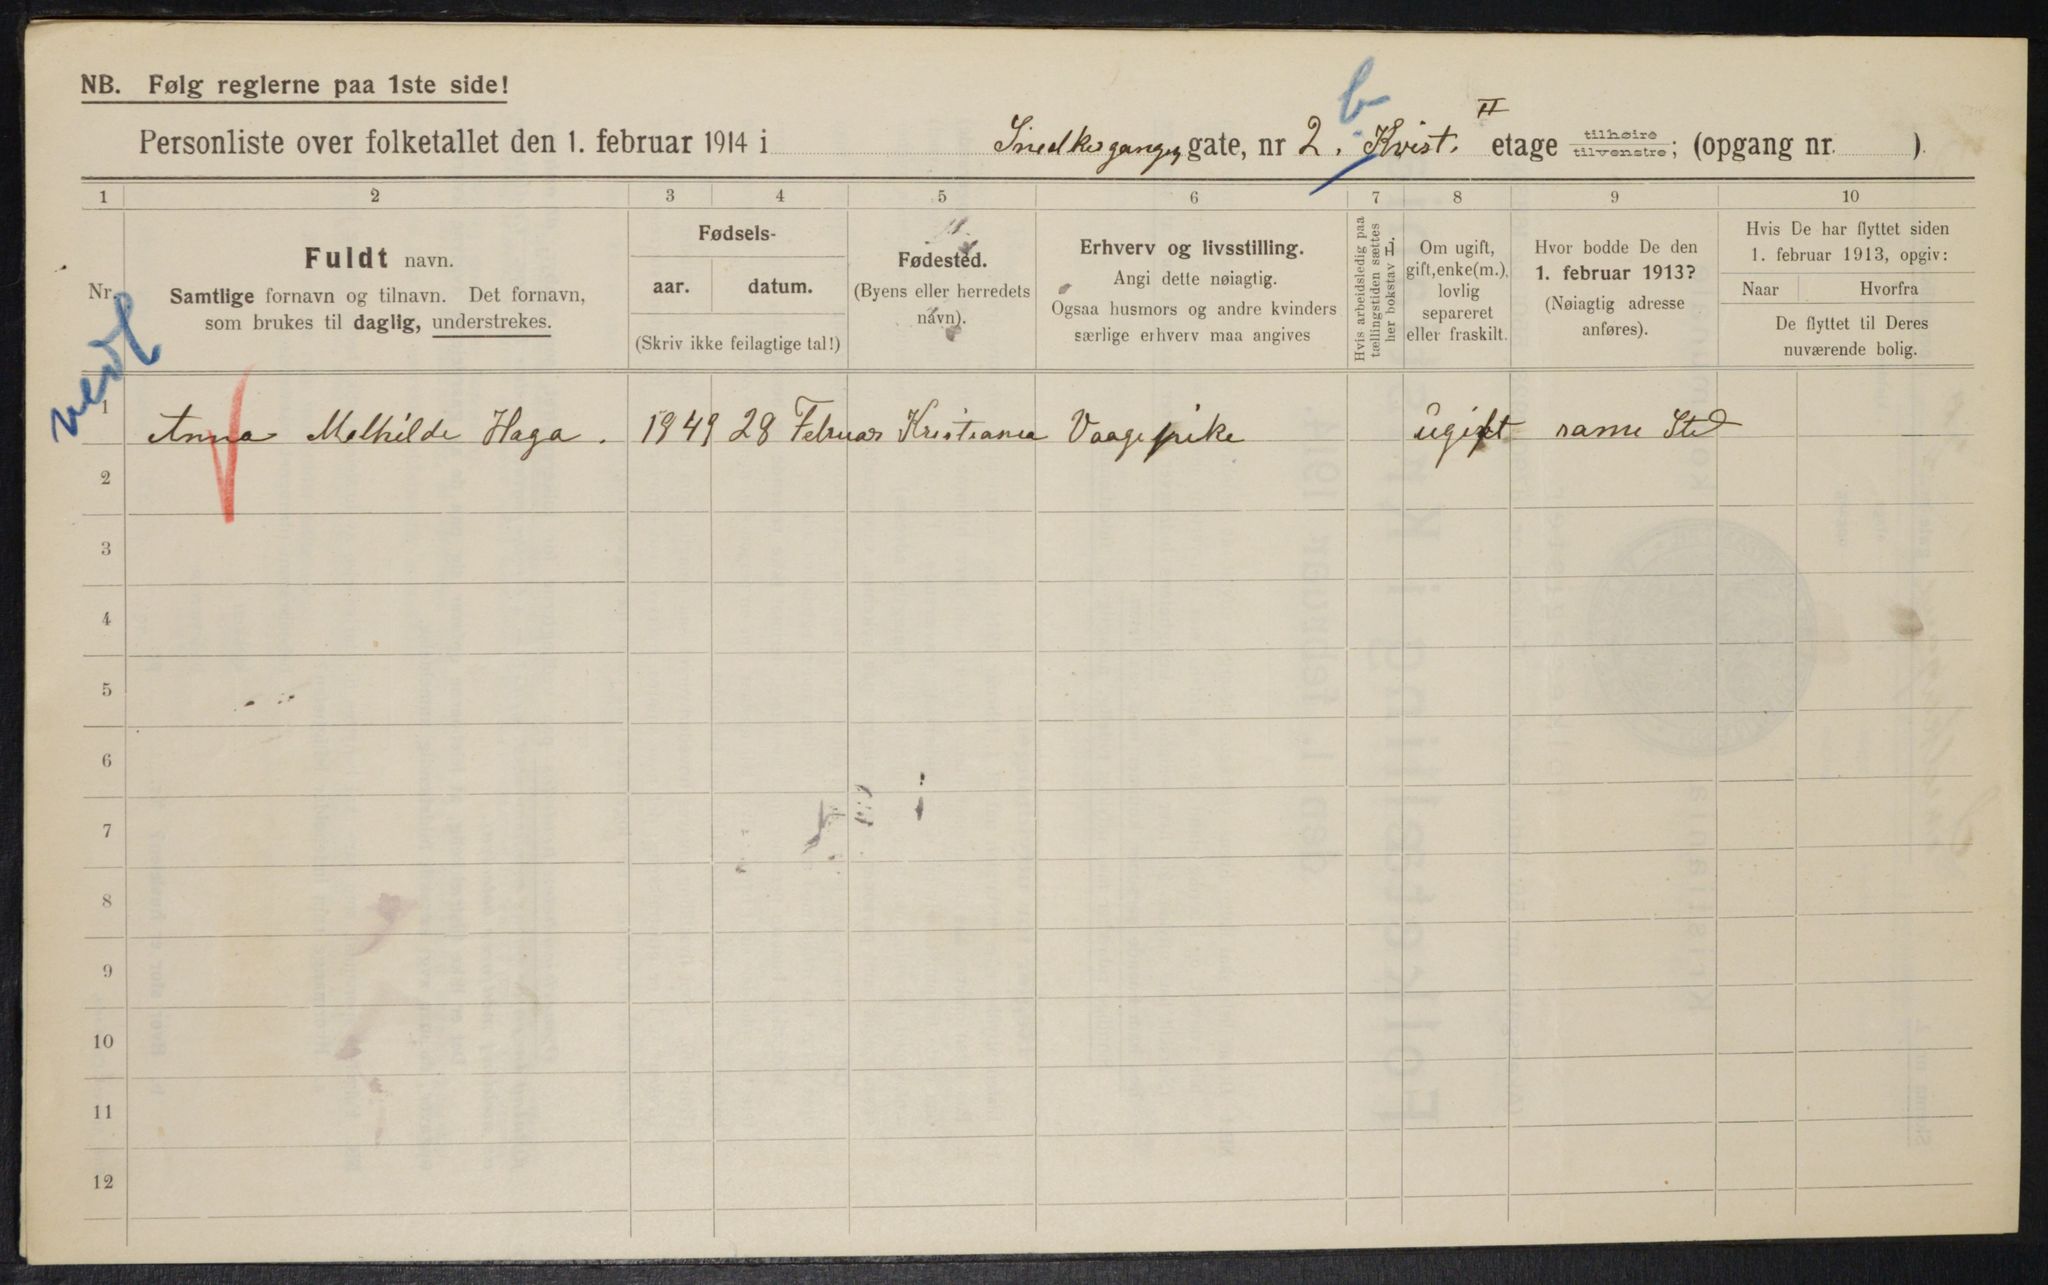 NB. Følg reglerne paa 1ste side!
Personliste over folketallet den 1. februar 1914 i Snedkergangen gate, nr 2. b Kvist. II etage tilhøire / tilvenstre; (opgang nr. ).
1 2 3 4 5 6 7 8 9 10
Nr.
Fuldt navn.
Samtlige fornavn og tilnavn. Det fornavn,
som brukes til daglig, understrekes.
Fødsels-
aar. datum.
(Skriv ikke feilagtige tal!)
Fødested.
(Byens eller herredets
navn).
Erhverv og livsstilling.
Angi dette nøiagtig.
Ogsaa husmors og andre kvinders
særlige erhverv maa angives
Hvis arbeidsledig paa
tællingstiden sættes
her bokstav L.
Om ugift,
gift, enke(m.),
lovlig
separeret
eller fraskilt.
Hvor bodde De den
1. februar 1913?
(Nøiagtig adresse
anføres).
Hvis De har flyttet siden
1. februar 1913, opgiv:
Naar Hvorfra
De flyttet til Deres
nuværende bolig.
1 Anna Mathilde Haga. 1849 28 Februar Kristiania ugift samme Sted
2
3
4
5
6
7
8
9
10
11
12